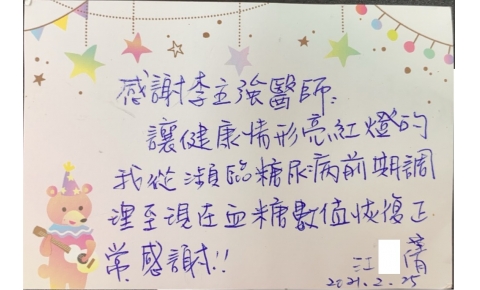 感謝李主強醫師:
讓健康情形亮紅燈的
我從瀕臨糖尿病前期調
理至現在血糖數值恢復正
常感謝!!
江 蒨
2021.2.25